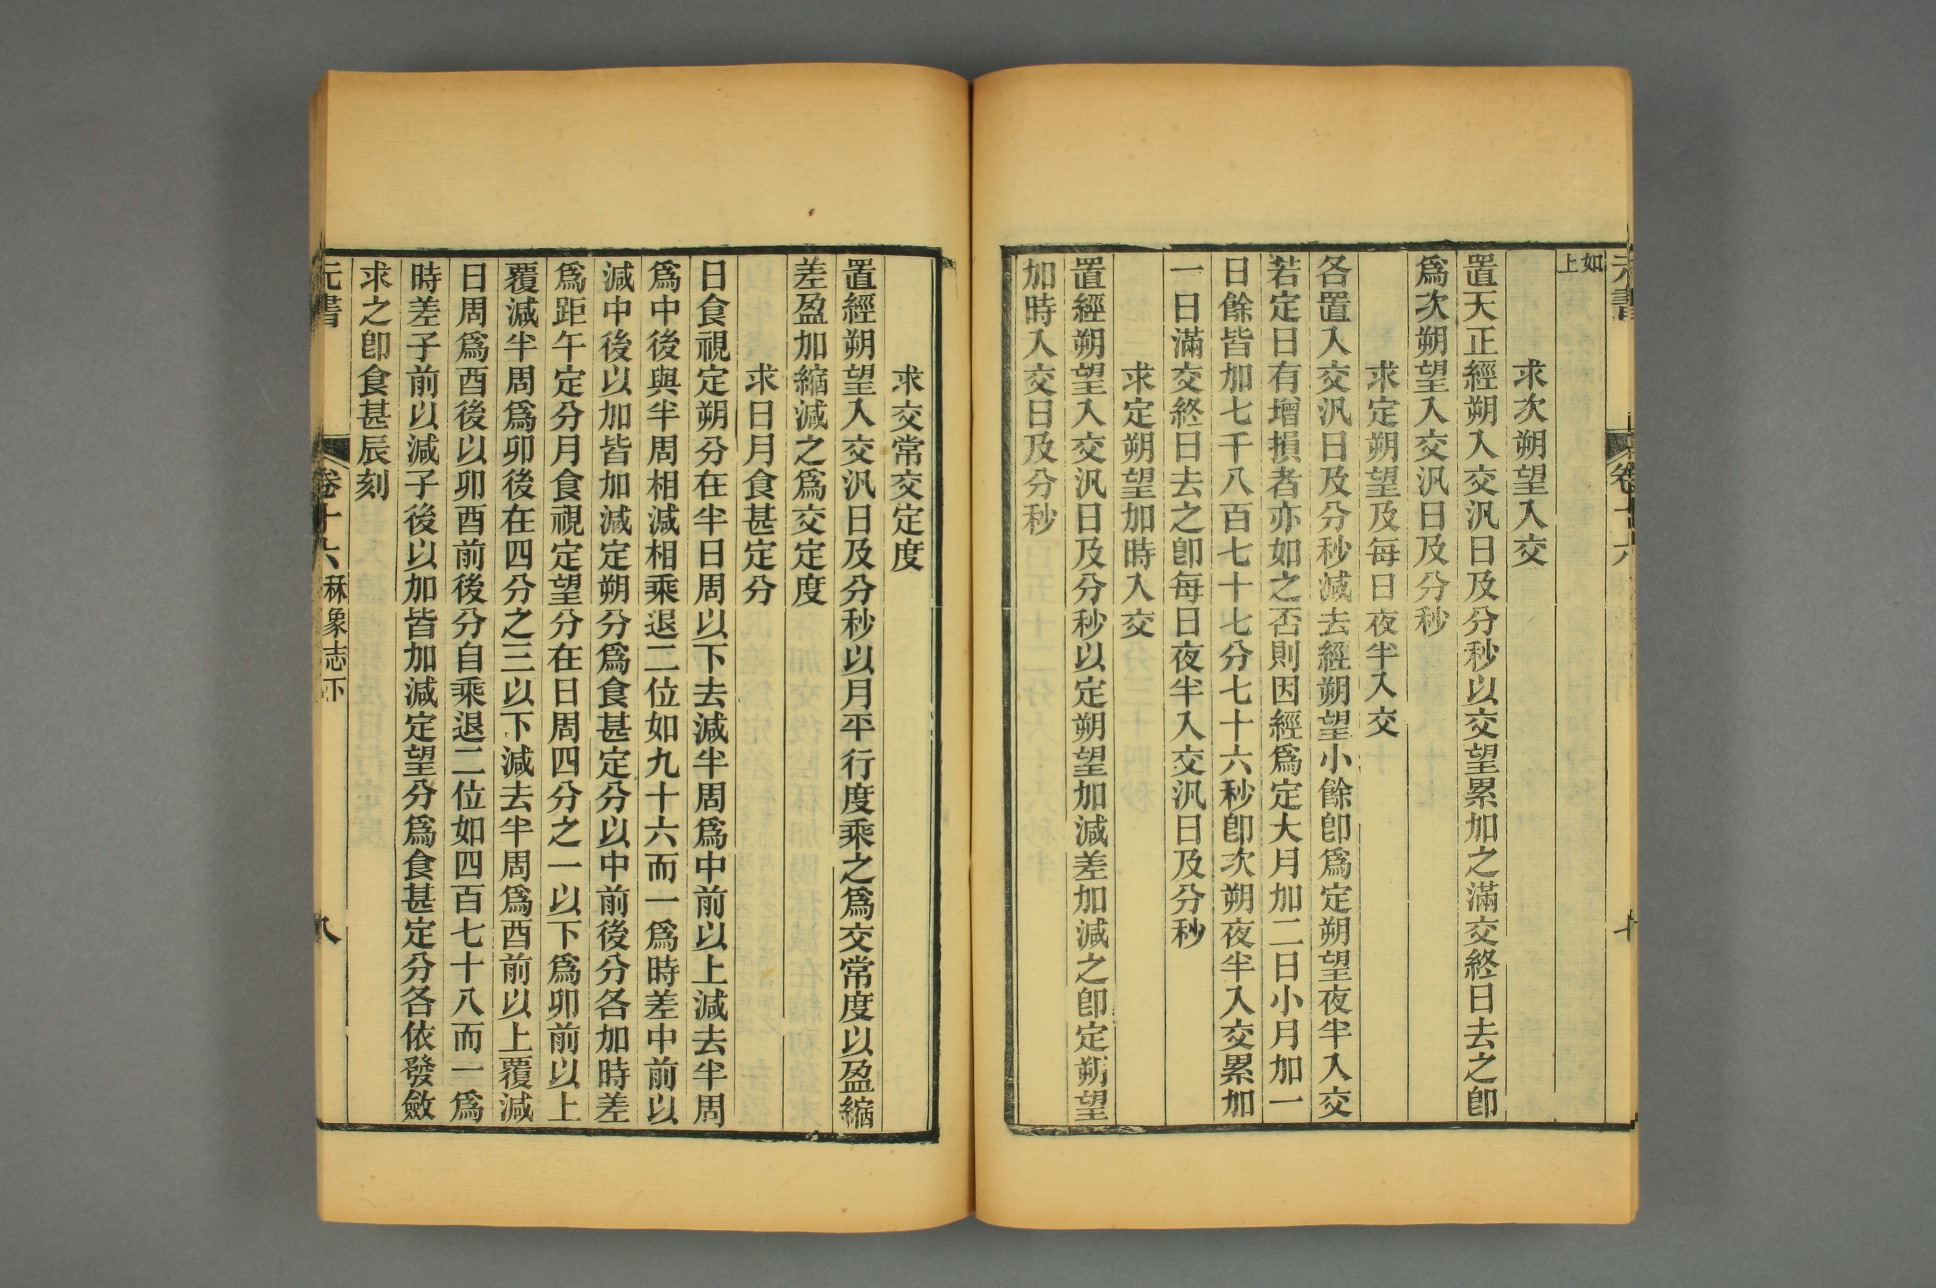 元書
卷十六
七
如
上
求次朔望入交
置天正經朔入交汎日及分秒以交望累加之滿交終日去之卽
爲次朔望入交汎日及分秒
求定朔望及每日夜半入交
各置入交汎日及分秒減去經朔望小餘卽爲定朔望夜半入交
若定日有增損者亦如之否則因經爲定大月加二日小月加一
日餘皆加七千八百七十七分七十六秒卽次朔夜半入交累加
一日滿交終日去之卽每日夜半入交汎日及分秒
求定朔望加時入交
置經朔望入交汎日及分秒以定朔望加減差加減之卽定朔望
加時入交日及分秒
求交常交定度
置經朔望入交汎日及分秒以月平行度乘之爲交常度以盈縮
差盈加縮減之爲交定度
求日月食甚定分
日食視定朔分在半日周以下去減半周爲中前以上減去半周
爲中後與半周相減相乘退二位如九十六而一爲時差中前以
減中後以加皆加減定朔分爲食甚定分以中前後分各加時差
爲距午定分月食視定望分在日周四分之一以下爲卯前以上
覆減半周爲卯後在四分之三以下減去半周爲酉前以上覆減
日周爲酉後以卯酉前後分自乘退二位如四百七十八而一爲
時差子前以減子後以加皆加減定望分爲食甚定分各依發斂
求之卽食甚辰刻
元書
卷十六
秝象志下
八